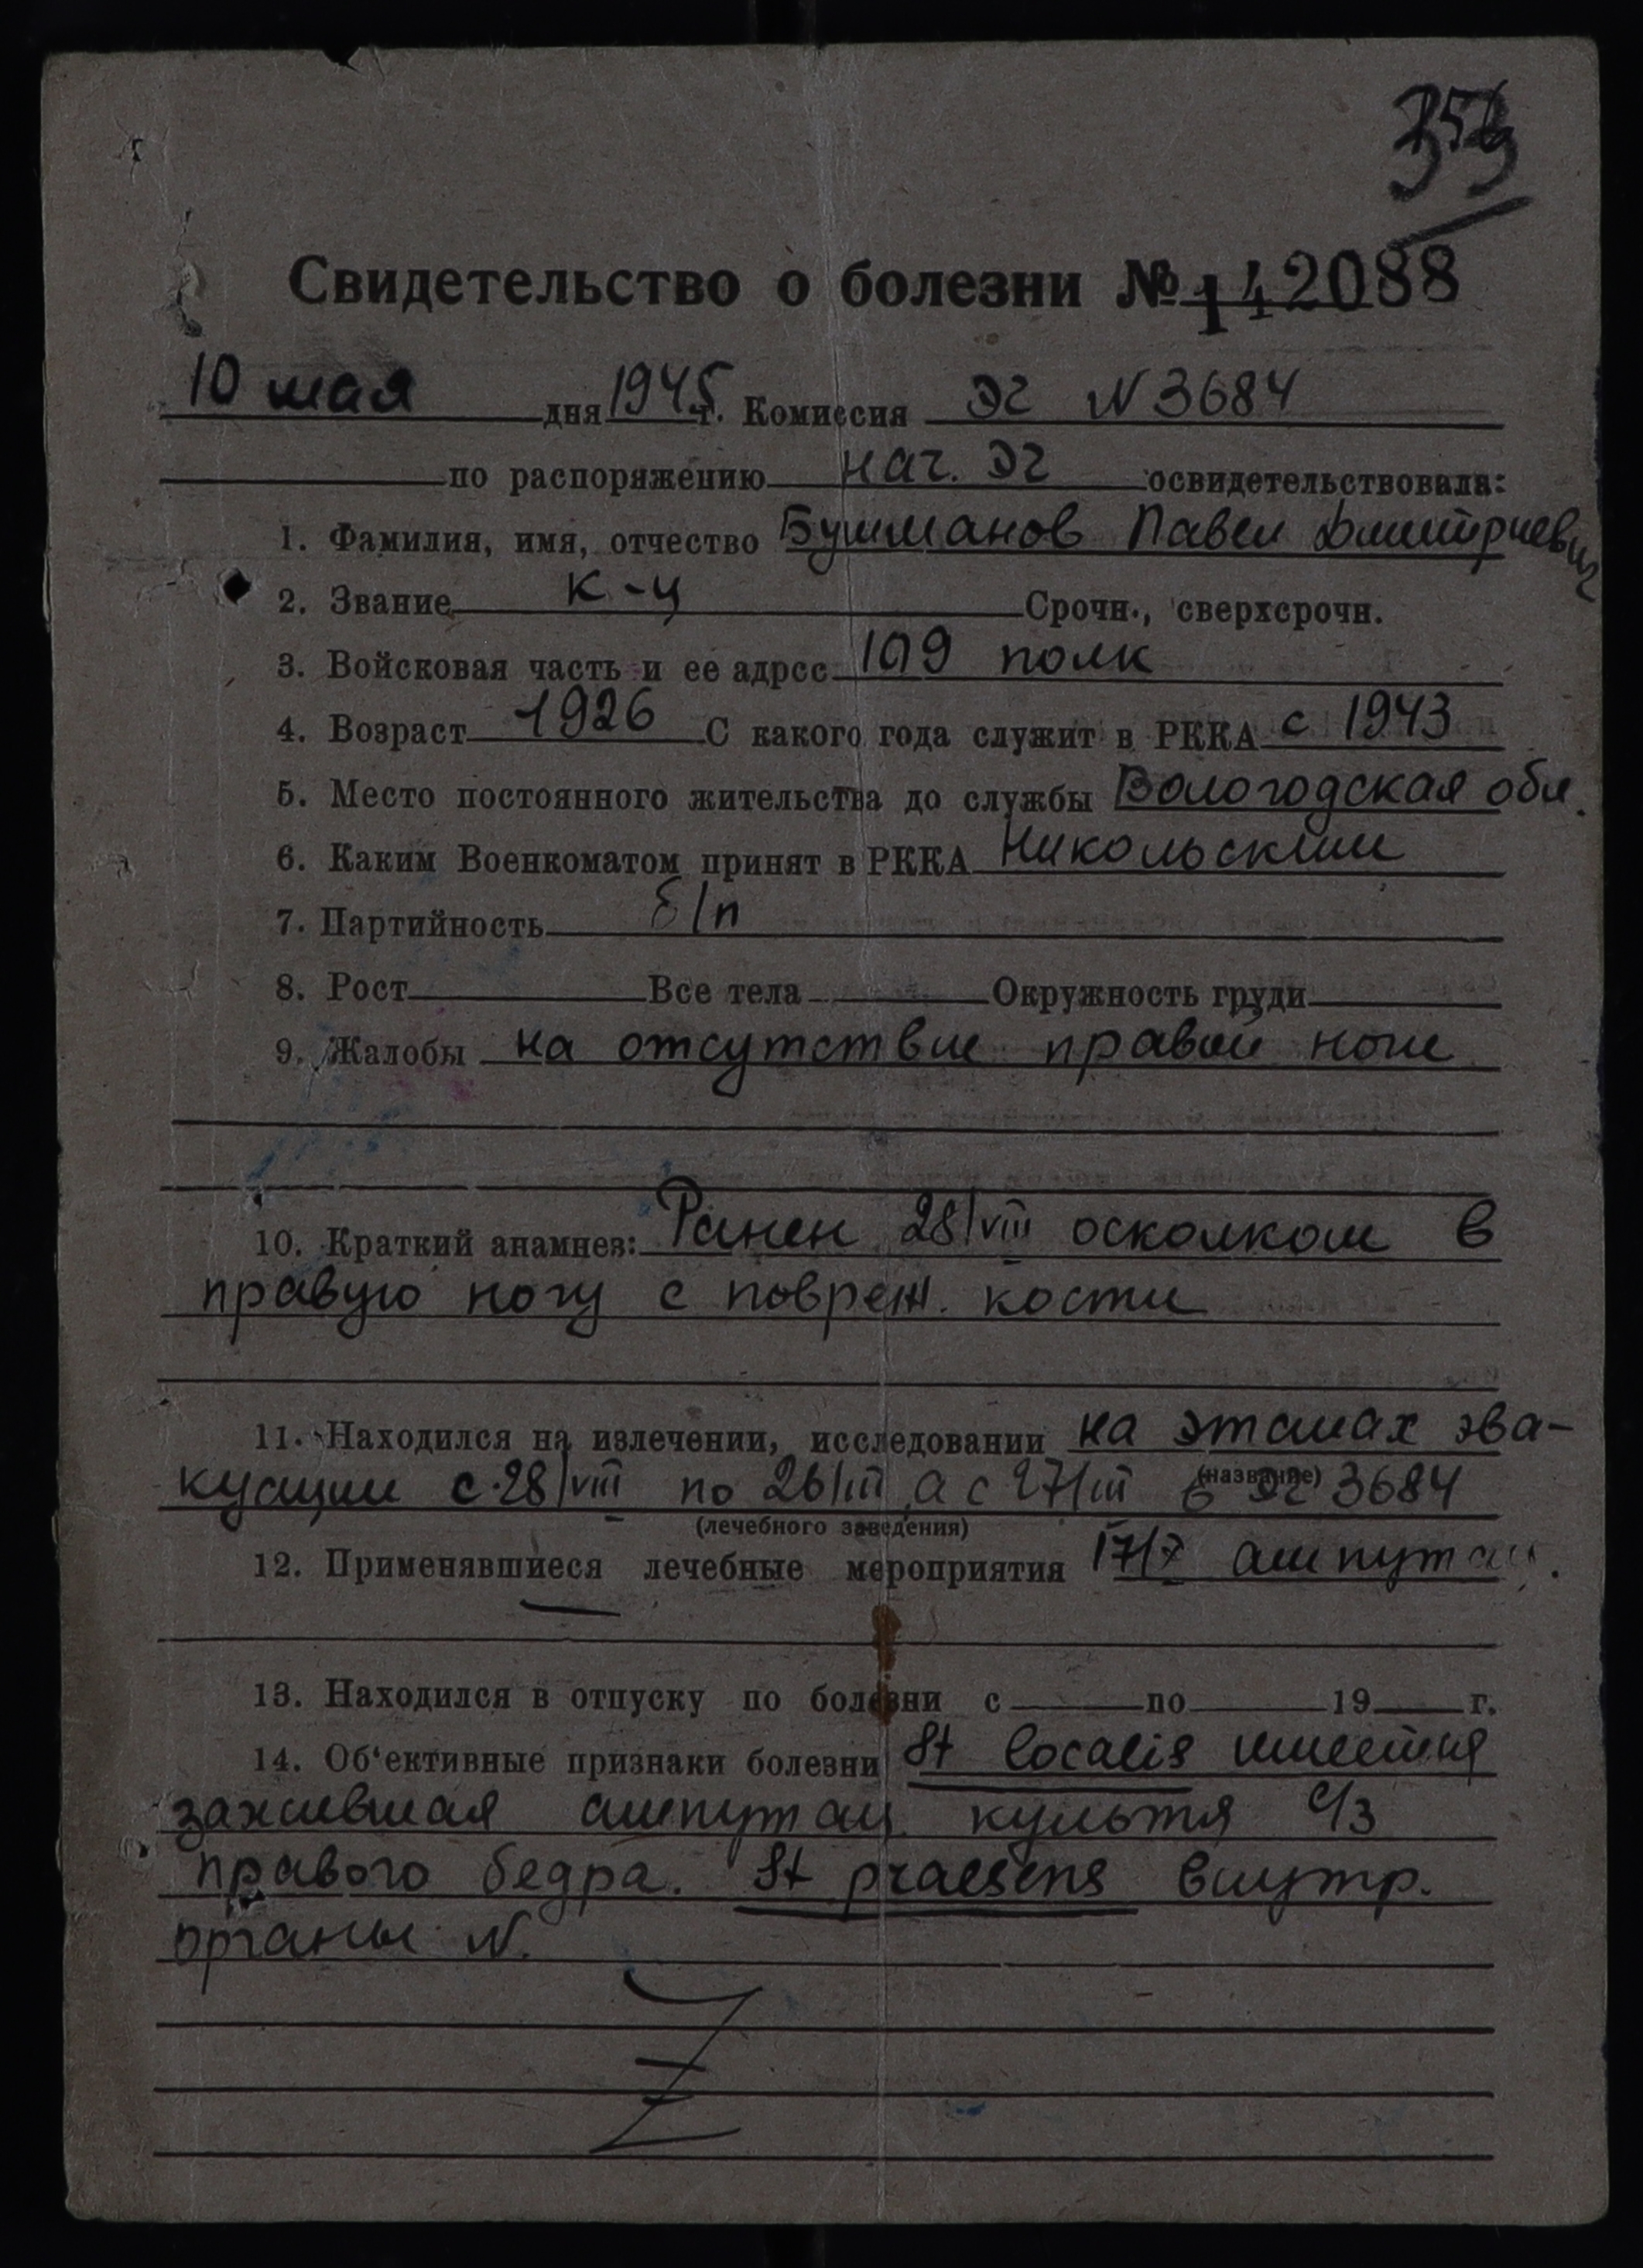 Свидетельство о болезни № 142088
10 мая дня 1945 г. Комиссия ЭГ N 3684
по распоряжению нач. ЭГ освидетельствовала:
1. Фамилия, имя, отчество Бушманов Павел Дмитриевич
2. Звание к-ц Срочн., сверхсрочн.
3. Войсковая часть и ее адрес 109 полк
4. Возраст 1926 С какого года служит в РККА с 1943
5. Место постоянного жительства до службы Вологодская обл.
6. Каким Военкоматом принят в РККА Никольским
7. Партийность б/п
8. Рост Все тела Окружность груди
9. Жалобы на отсутствие правой ноги
10. Краткий анамнез: Ранен 28/VIII осколком в
правую ногу с повреж. кости
11. Находился на излечении, исследовании на этапах эва-
(название)
куации с 28/VIII по 26/III, а с 27/III в ЭГ 3684
(лечебного заведения)
12. Применявшиеся лечебные мероприятия 17/X ампутац.
13. Находился в отпуску по болезни с по 19 г.
14. Об'ективные признаки болезни St localis имеется
зажившая ампутац. культя с/з
правого бедра. St praesens внутр.
органы N.